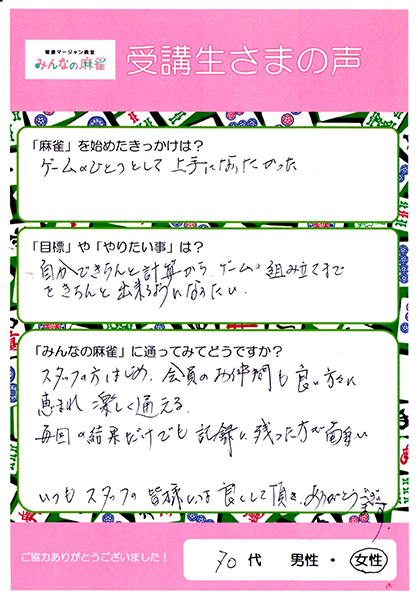 健康マージャン教室
みんなの麻雀
受講生さまの声
「麻雀」を始めたきっかけは？
ゲームのひとつとして 上手になりたかった
「目標」や「やりたい事」は？
自分できちんと計算から、ゲームの組み立てまで
をきちんと出来る様になりたい。
「みんなの麻雀」に通ってみてどうですか？
スタッフの方はじめ、会員のお仲間も良い方々に
恵まれ 楽しく通える。
毎回の結果だけでも記録に残った方が面白い
いつもスタッフの皆様には良くして頂き、ありがとうございます。
ご協力ありがとうございました！
70 代 男性 ・ 女性